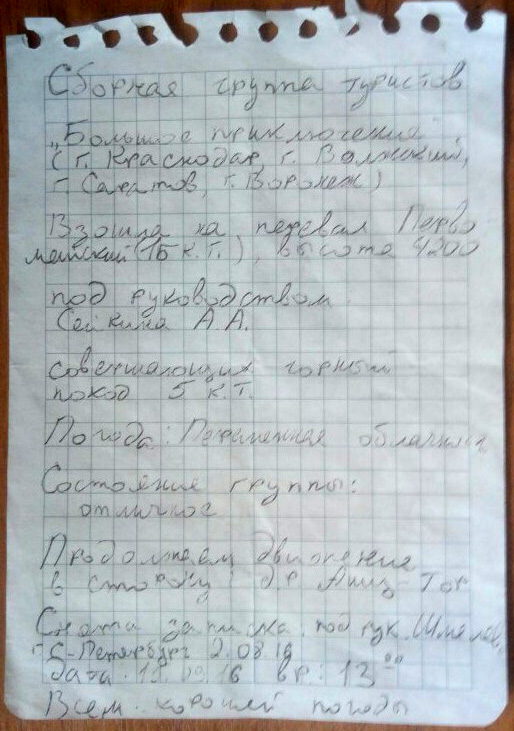 Сборная группа туристов
"Большое приключение"
(г. Краснодар, г. Волжский,
г. Саратов, г. Воронеж)
Взошла на перевал Перво
майский (1Б к.т.), высота 4200
под руководством
Сейкина А.А.
совершающих горный
поход 5 к.т.
Погода: Переменная облачность
Состояние группы:
отличное
Продолжаем движение
в сторону
Снята записка под рук.
г. С-Петербург 2.08.16
дата вр: 13⁰⁰
Всем хорошей погоды